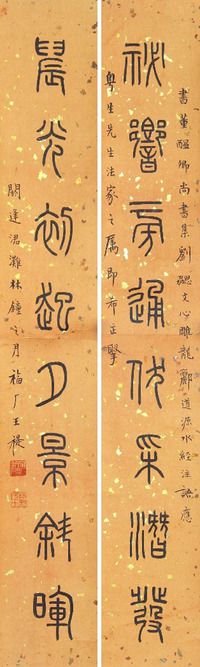 書董醞卿尚書集劉勰文心雕龍酈道源水經注語應
祕響旁通伏采潛發
粵生先生法家之屬即希正擘
晨光初起夕景斜暉
閼逢涒灘林鐘之月福厂王禔